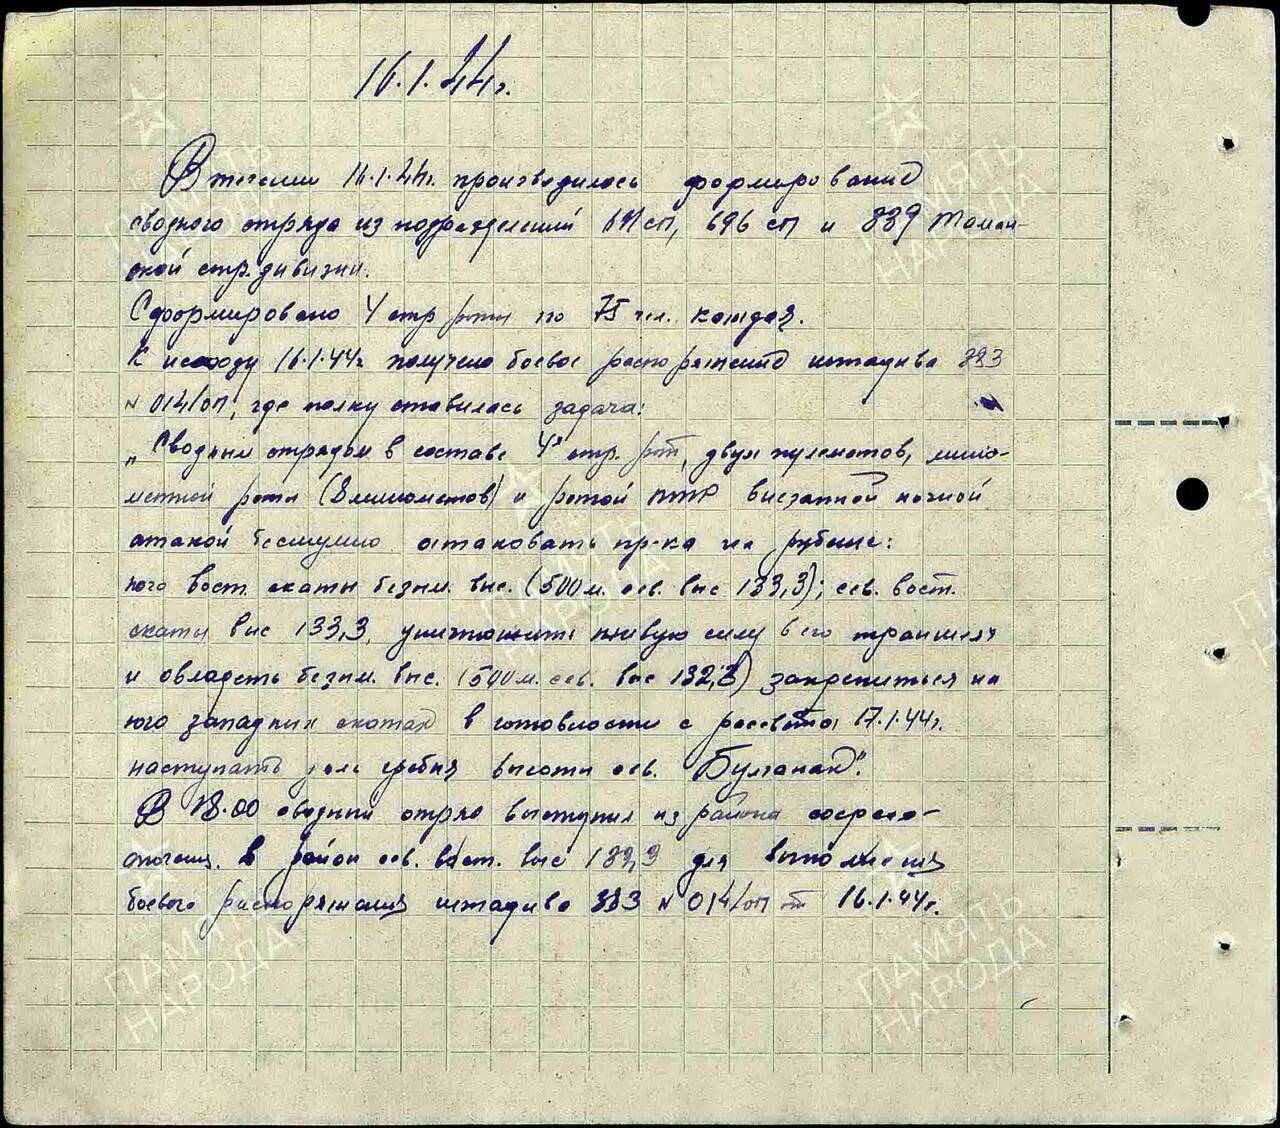 16.1.44г.
В течении 16.1.44г. производилось формирование
сводного отряда из подразделений 691 сп, 696 сп и 839 Таман-
ской стр. дивизии.
Сформировано 4 стр роты по 75 чел. каждая.
К исходу 16.1.44г получено боевое распоряжение штадива 383
№ 014/оп, где полку ставилась задача:
„Сводным отрядом в составе 4х стр. рот, двух пулеметов, мино-
метной роты (8 минометов) и ротой ПТР внезапной ночной
атакой бесшумно атаковать пр-ка на рубеже:
юго вост. скаты безым. выс. (500 м. сев. выс 133,3); сев. вост.
скаты выс 133,3, уничтожить живую силу в его траншеях
и овладеть безым. выс. (500 м. сев. выс 132,3) закрепиться на
юго западных скатах в готовности с рассвета 17.1.44г.
наступать вдоль гребня высоты сев. Булганак".
В 18.00 сводный отряд выступил из района сосредо-
точения в район сев. вост. выс 133,3 для выполнения
боевого распоряжения штадива 383 № 014/оп от 16.1.44г.
ПАМЯТЬ
НАРОДА
ПАМЯТЬ
НАРОДА
ПАМЯТЬ
НАРОДА
ПАМЯТЬ
НАРОДА
ПАМЯТЬ
НАРОДА